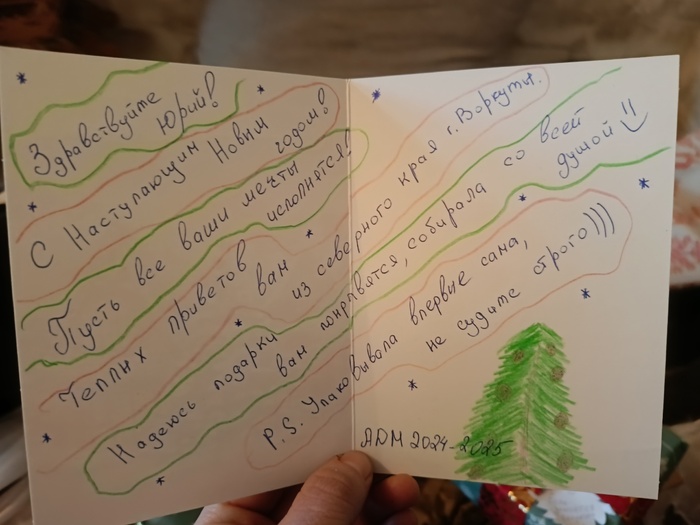 Здравствуйте
Юрий!
С Наступающим Новым
годом!
Пусть все ваши мечты
исполнятся!
Теплых приветов вам
из северного края г. Воркуты.
Надеюсь подарки вам
понравятся, собирала со всей
душой :)
P.S. Упаковывала впервые сама,
не судите строго)))
АДМ 2024-2025